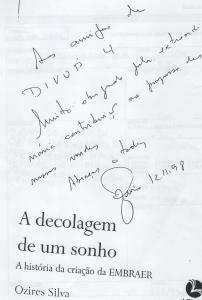 Aos amigos da
DIVUP 4
Muito obrigado pela extraordi
nária contribuição ao progresso das
nossas
Abraços a todos
Ozires 12.11.98
A decolagem
de um sonho
A história da criação da EMBRAER
Ozires Silva